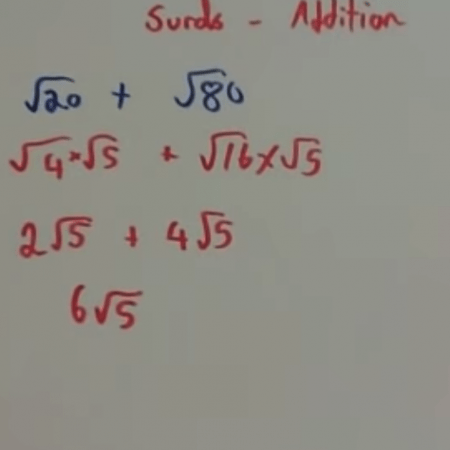 Surds - Addition
√20 + √80
√4×√5 + √16×√5
2√5 + 4√5
6√5